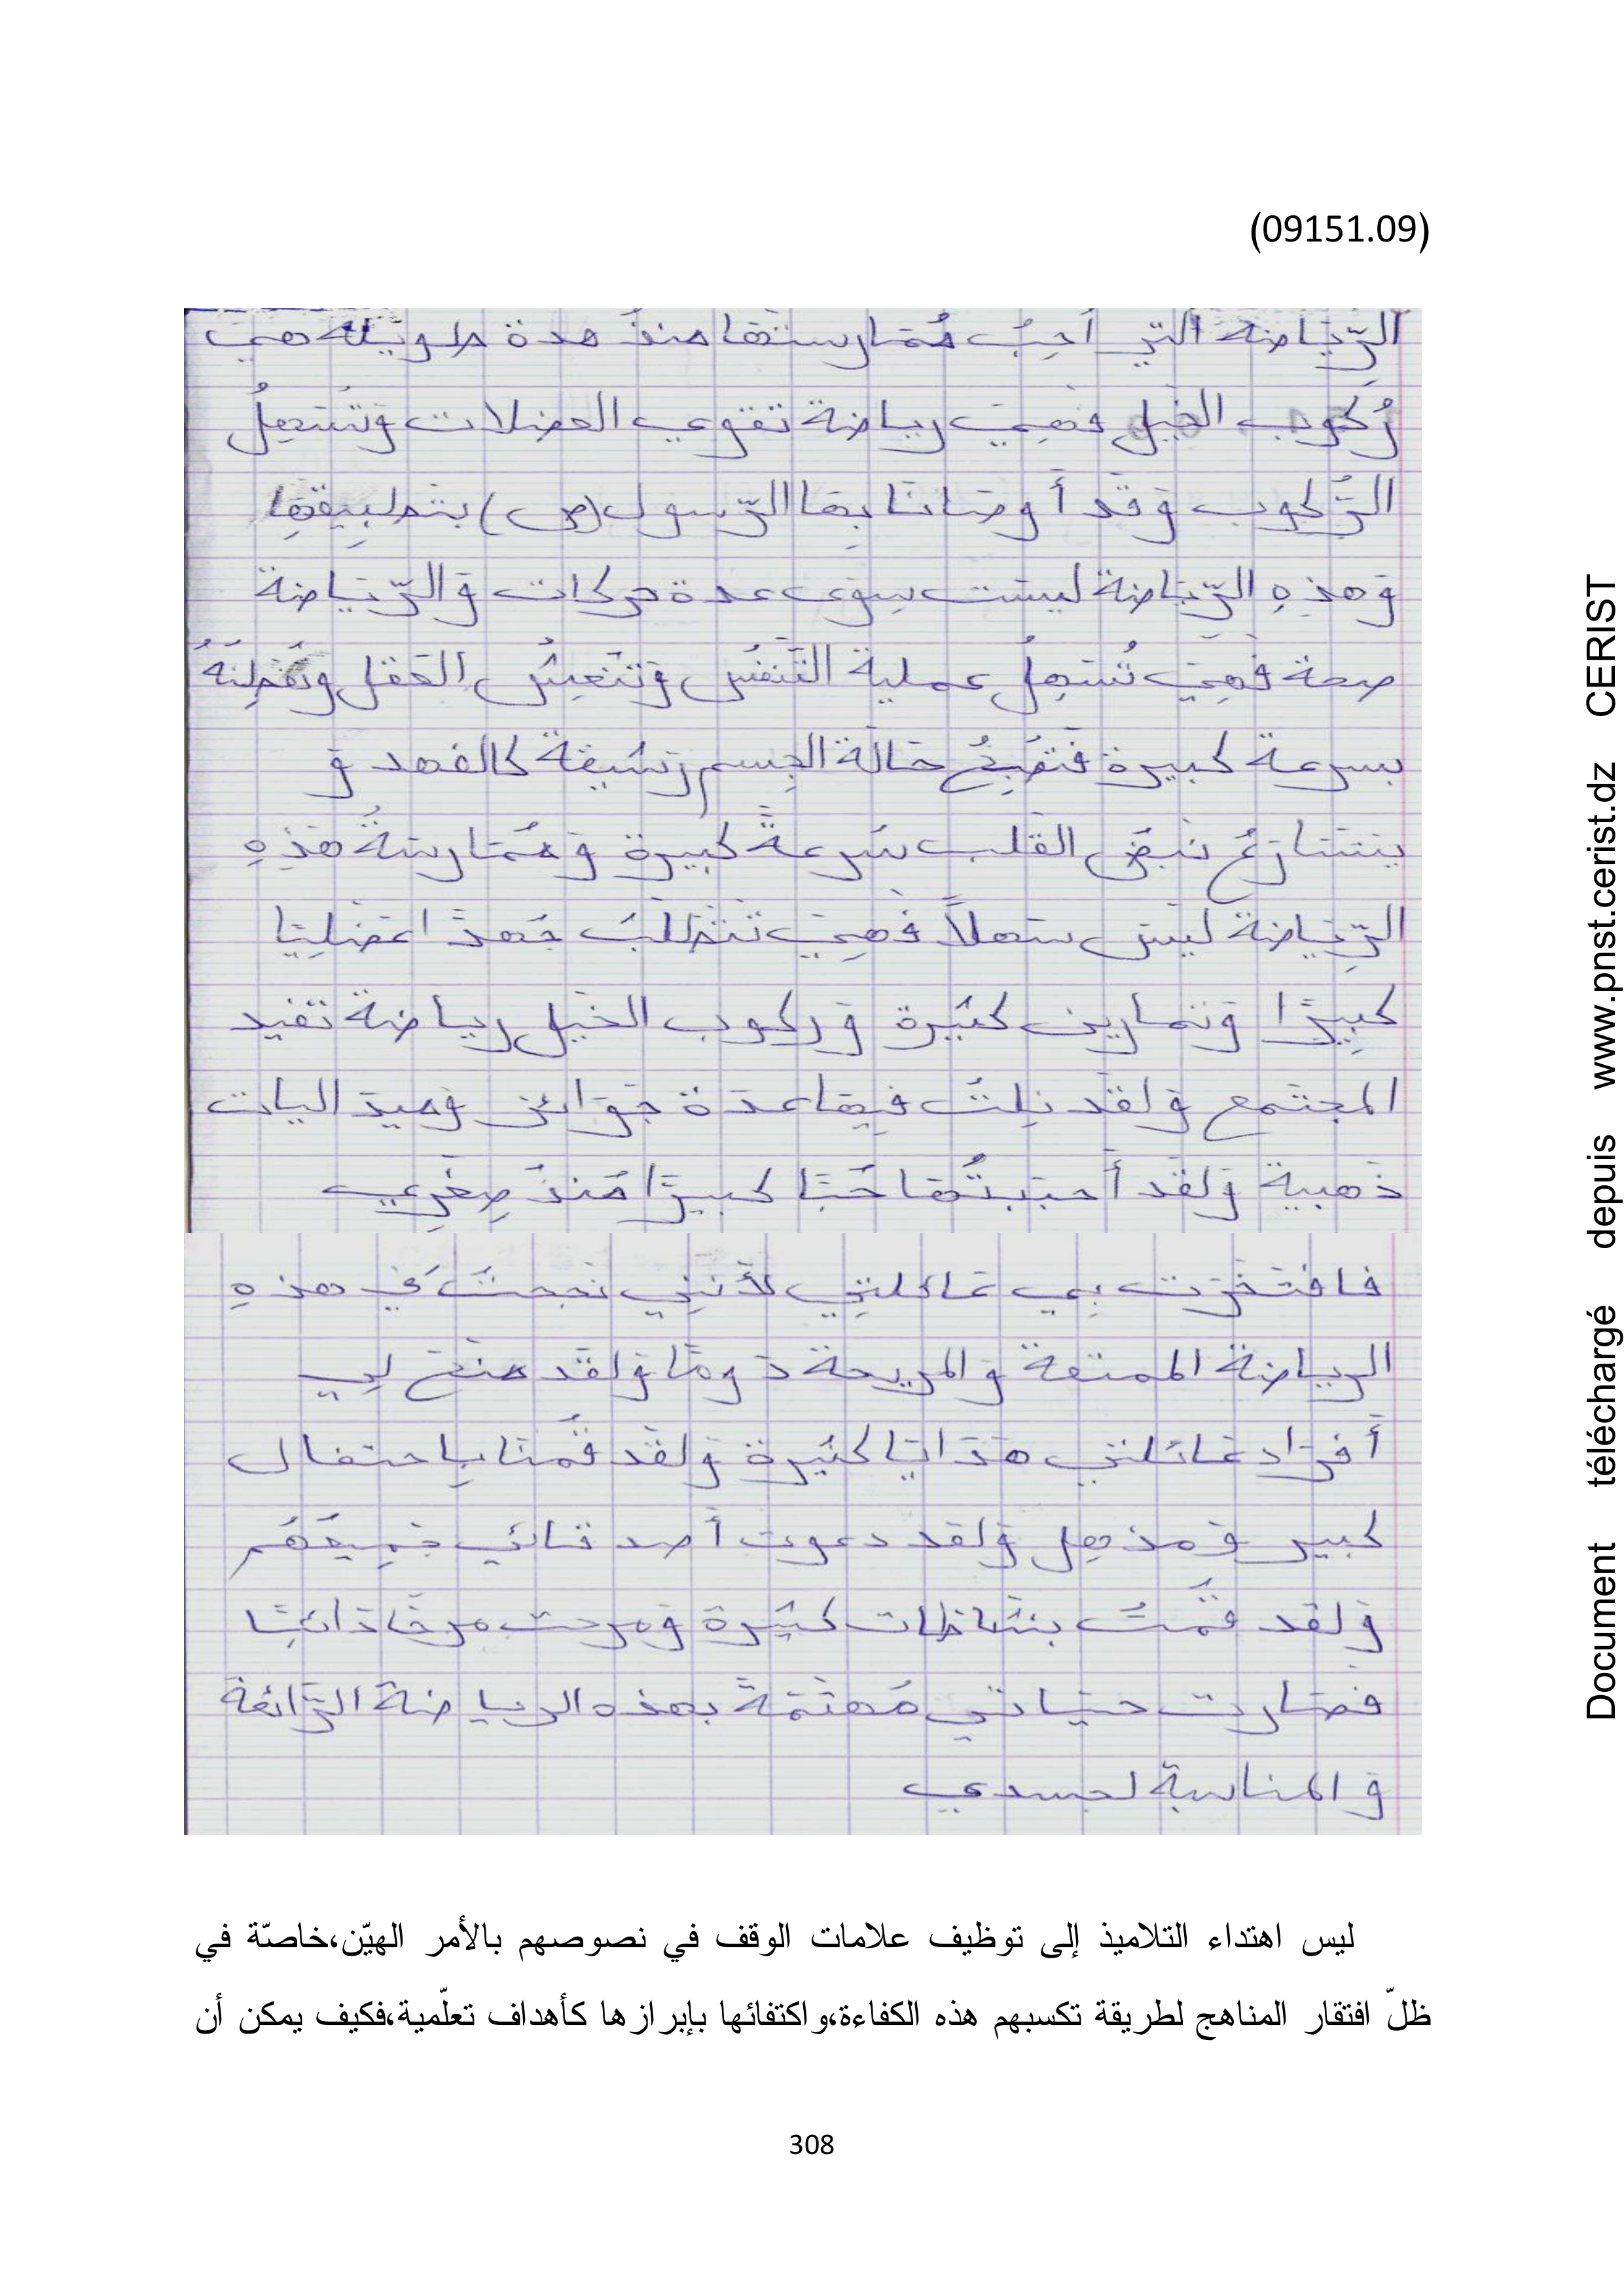 (09151.09)
الرِّيَاضة التي أُحِبُ مُمَارستَها منذُ مدة طويلة هيَ
رُكوب الخيل فهيَ رياضة تقوي العضلات وَتُسَهِلُ
الرُّكوب وَقَد أَوصَانَا بِها الرّسول (ص) بتَطبِيقِها
وَهذِهِ الرِّيَاضة ليسَت سِوَى عدة حركات وَالرّيَاضة
صحة فَهِيَ تُسَهِلُ عملية التَّنَفُس وَتُنعِشُ العَقل
بسرعة كبيرة فَتُصبِحُ حَالَة الجِسم رَشيقة كالفهد وَ
يَتَسَارَعُ نَبضُ القَلب سُرعةً كبيرة وَمُمَارسَةُ هَذِهِ
الرِّيَاضة لَيسَ سَهلاً فَهِيَ تَتَطَلَبُ جَهدَ اعَضَلِيَا
كبِيرًا وَتمارين كثيرة وَركوب الخَيل رياضة تفيد
المجتَمع وَلقَد نِلتُ فِيهَا عدَة جَوَائز وَميدَاليات
ذَهبية وَلقَد أَحبَبتُهَا حُبَا كبيرًا مُنذُ صِغَرِي
فافتَخَرَت بِي عَائلتِي لأَنَنِي نجحتُ في هذهِ
الرياضة الممتعة وَالمريحة دَومًا وَلقَد منَحَ لِي
أَفرَاد عَائلتي هَدَايَا كثيرة وَلقَد قُمنَا بِاحتفال
كبير وَمذهِل وَلقد دعوت أَصدقَائي جَمِيعُهُم
وَلقد قُمتُ بنشَاطات كثيرة وَمرحت مرحًا دَائمًا
فصَارت حيَاتي مُهتَمَةً بهذه الرياضة الرّائعة
وَالمناسبة لجسدي
ليس اهتداء التلاميذ إلى توظيف علامات الوقف في نصوصهم بالأمر الهيّن،خاصّة في
ظلّ افتقار المناهج لطريقة تكسبهم هذه الكفاءة،واكتفائها بإبرازها كأهداف تعلّمية،فكيف يمكن أن
308
Document téléchargé depuis www.pnst.cerist.dz CERIST